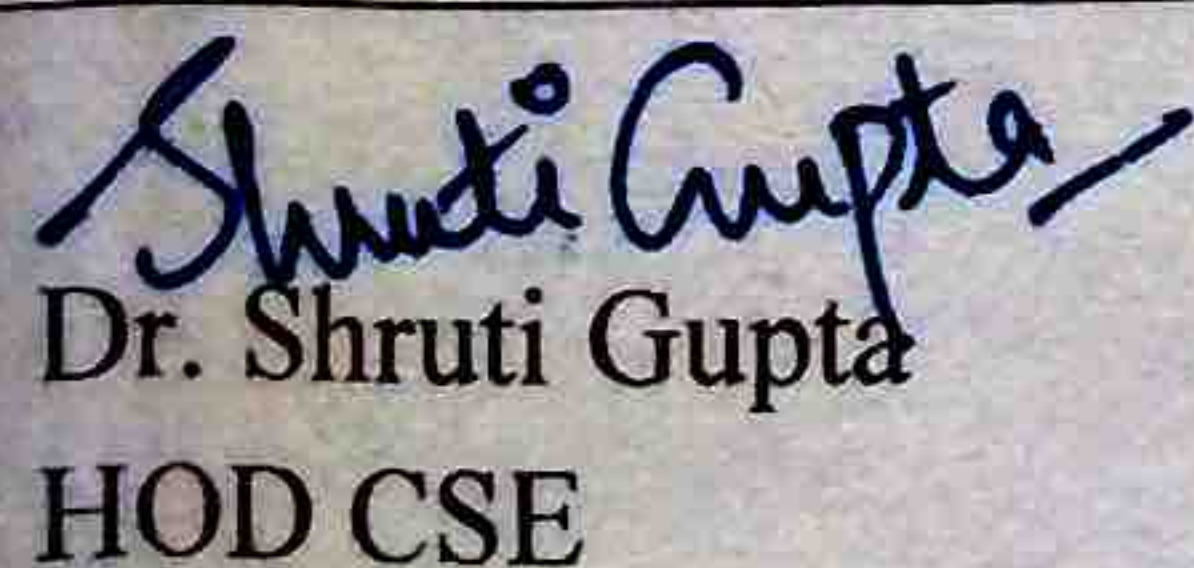 Shruti Gupta
Dr. Shruti Gupta
HOD CSE